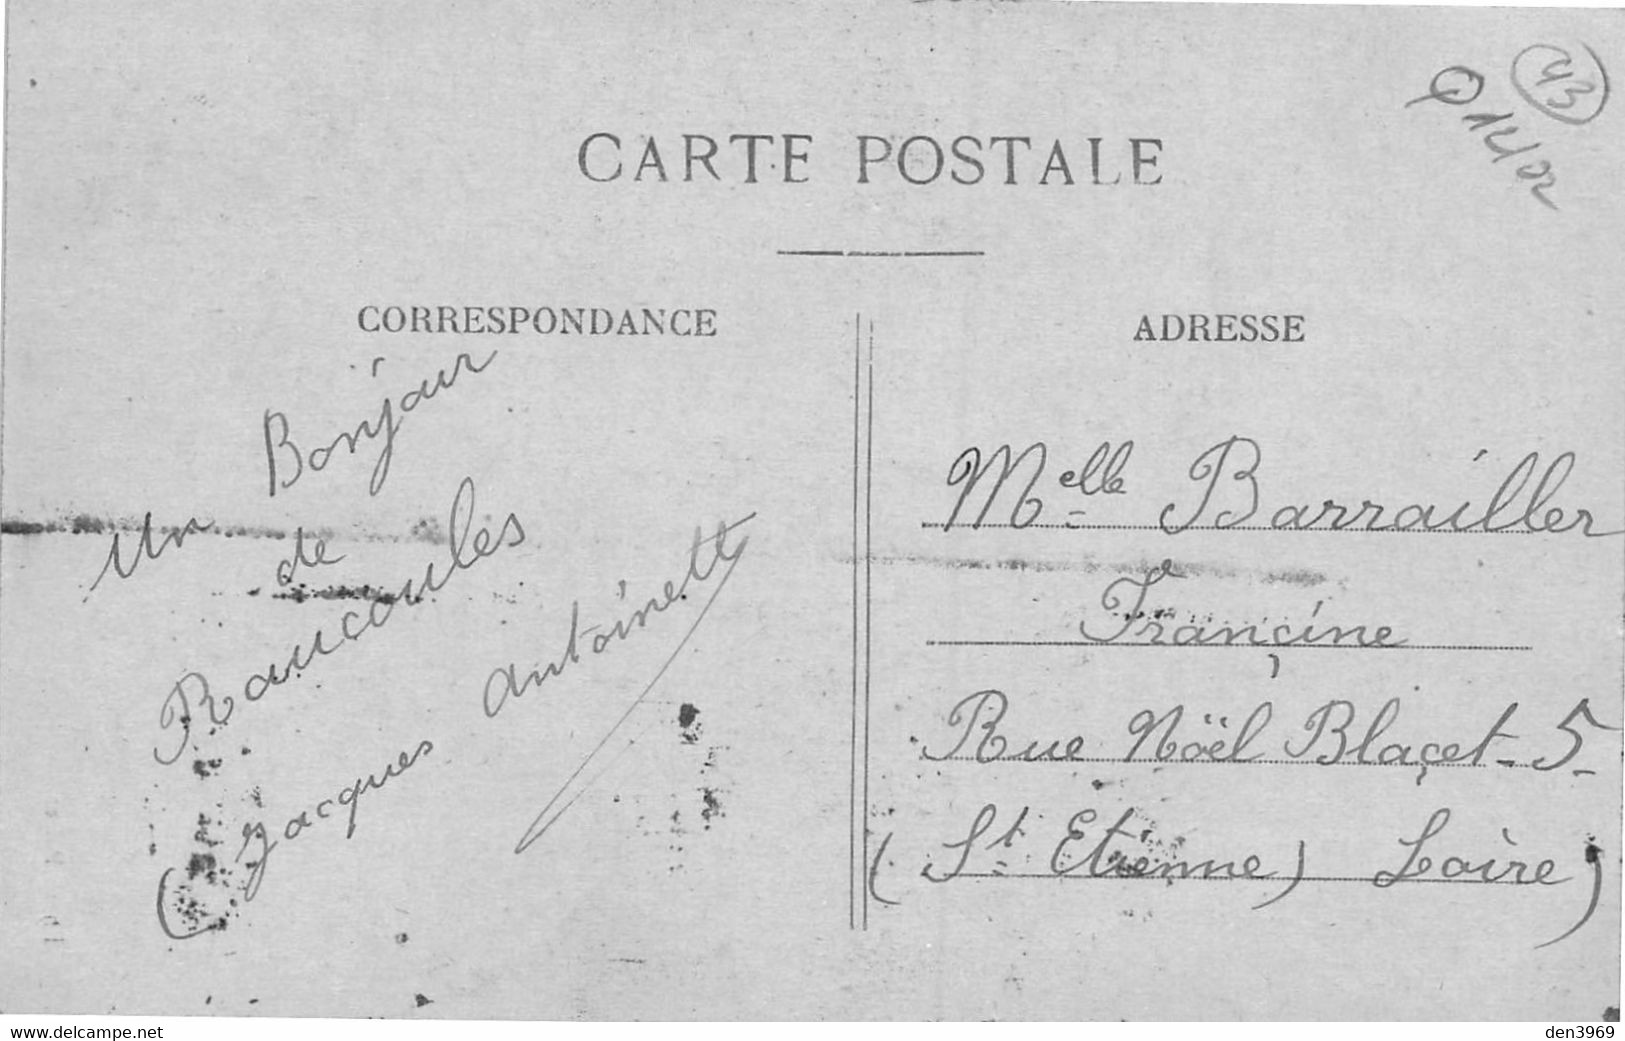 43
CARTE POSTALE
CORRESPONDANCE
Un Bonjour
de
Raucoules
(Jacques Antoinette
ADRESSE
Melle Barrailler
Françine
Rue Nöel Blaçet - 5 -
(St. Etienne) Loire)
www.delcampe.net
den3969